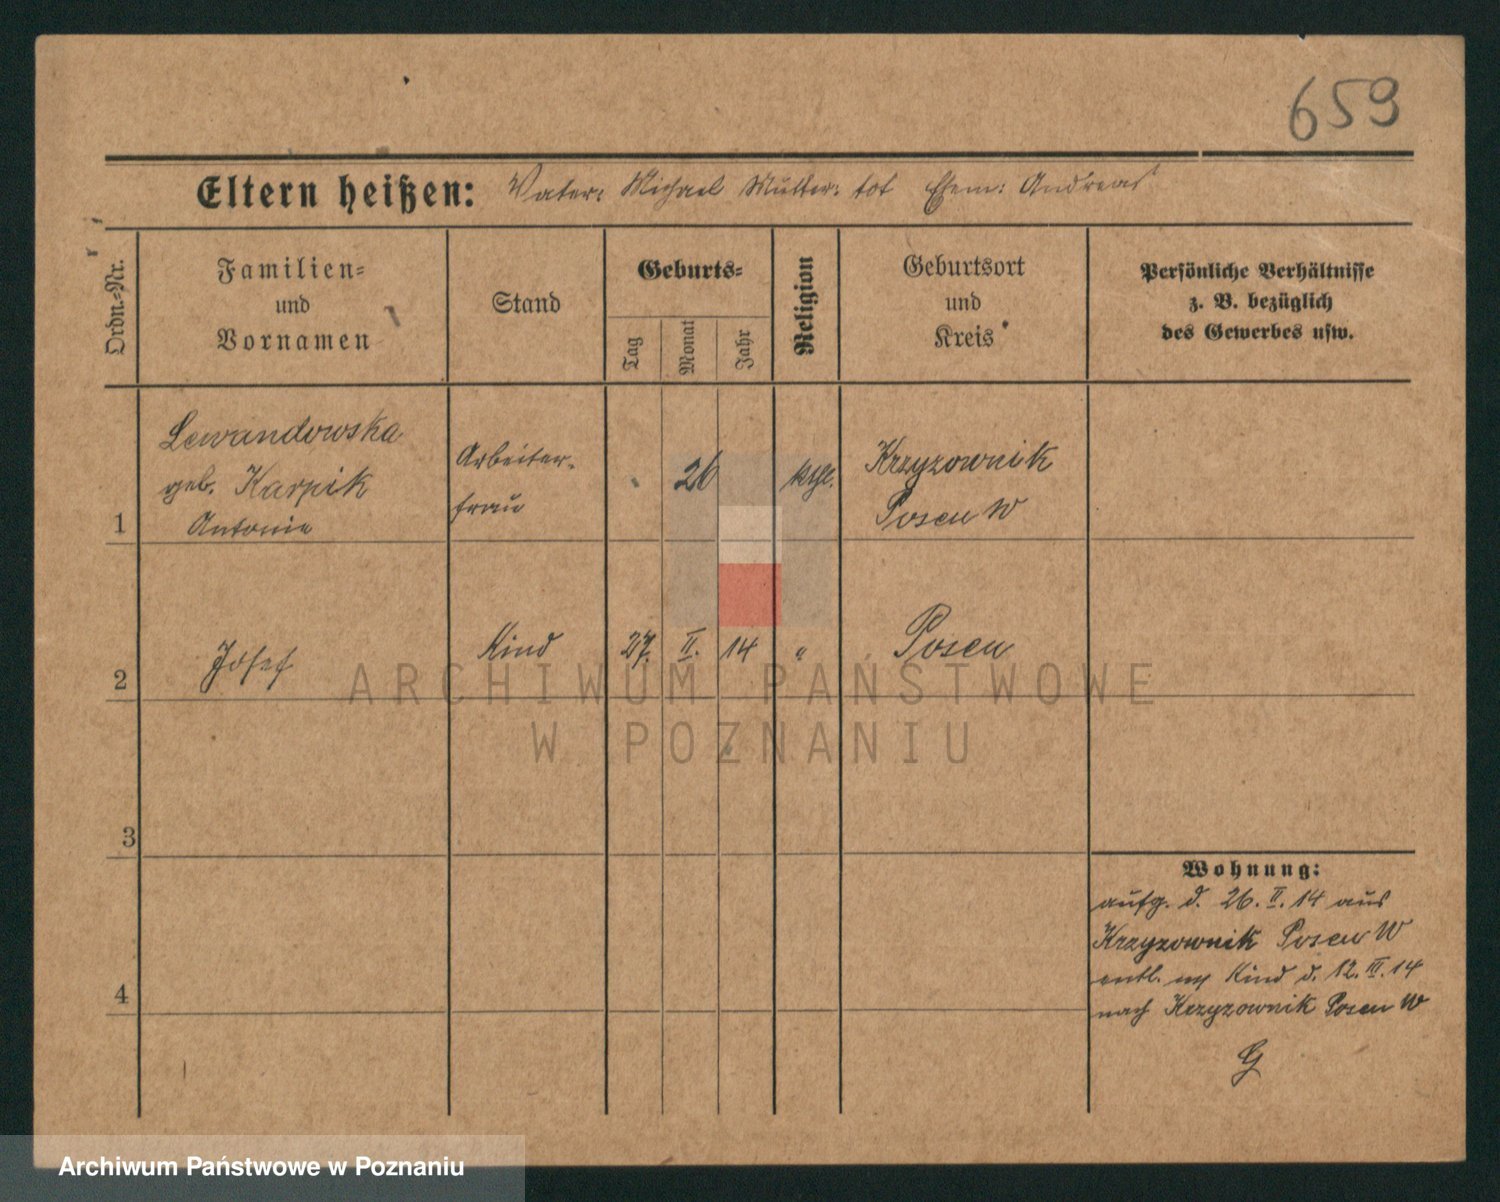 659
Eltern heißen: Vater: Michael Mutter: tot Ehem: Andreas
Ordn.-Nr.
Familien-
und
Vornamen
Stand
Geburts-
Tag
Monat
Jahr
Religion
Geburtsort
und
Kreis
Persönliche Verhältnisse
z. B. bezüglich
des Gewerbes usw.
1
Lewandowska
geb. Karpik
Antonie
Arbeiter-
frau
26
kth.
Krzyzownik
Posen W
2
Josef
Kind
27. II. 14
"
Posen
3
4
Wohnung:
aufg. d. 26. II. 14 aus
Krzyzownik Posen W
entl. Kind d. 12. III. 14
nach Krzyzownik Posen W
G
ARCHIWUM PAŃSTWOWE
W POZNANIU
Archiwum Państwowe w Poznaniu